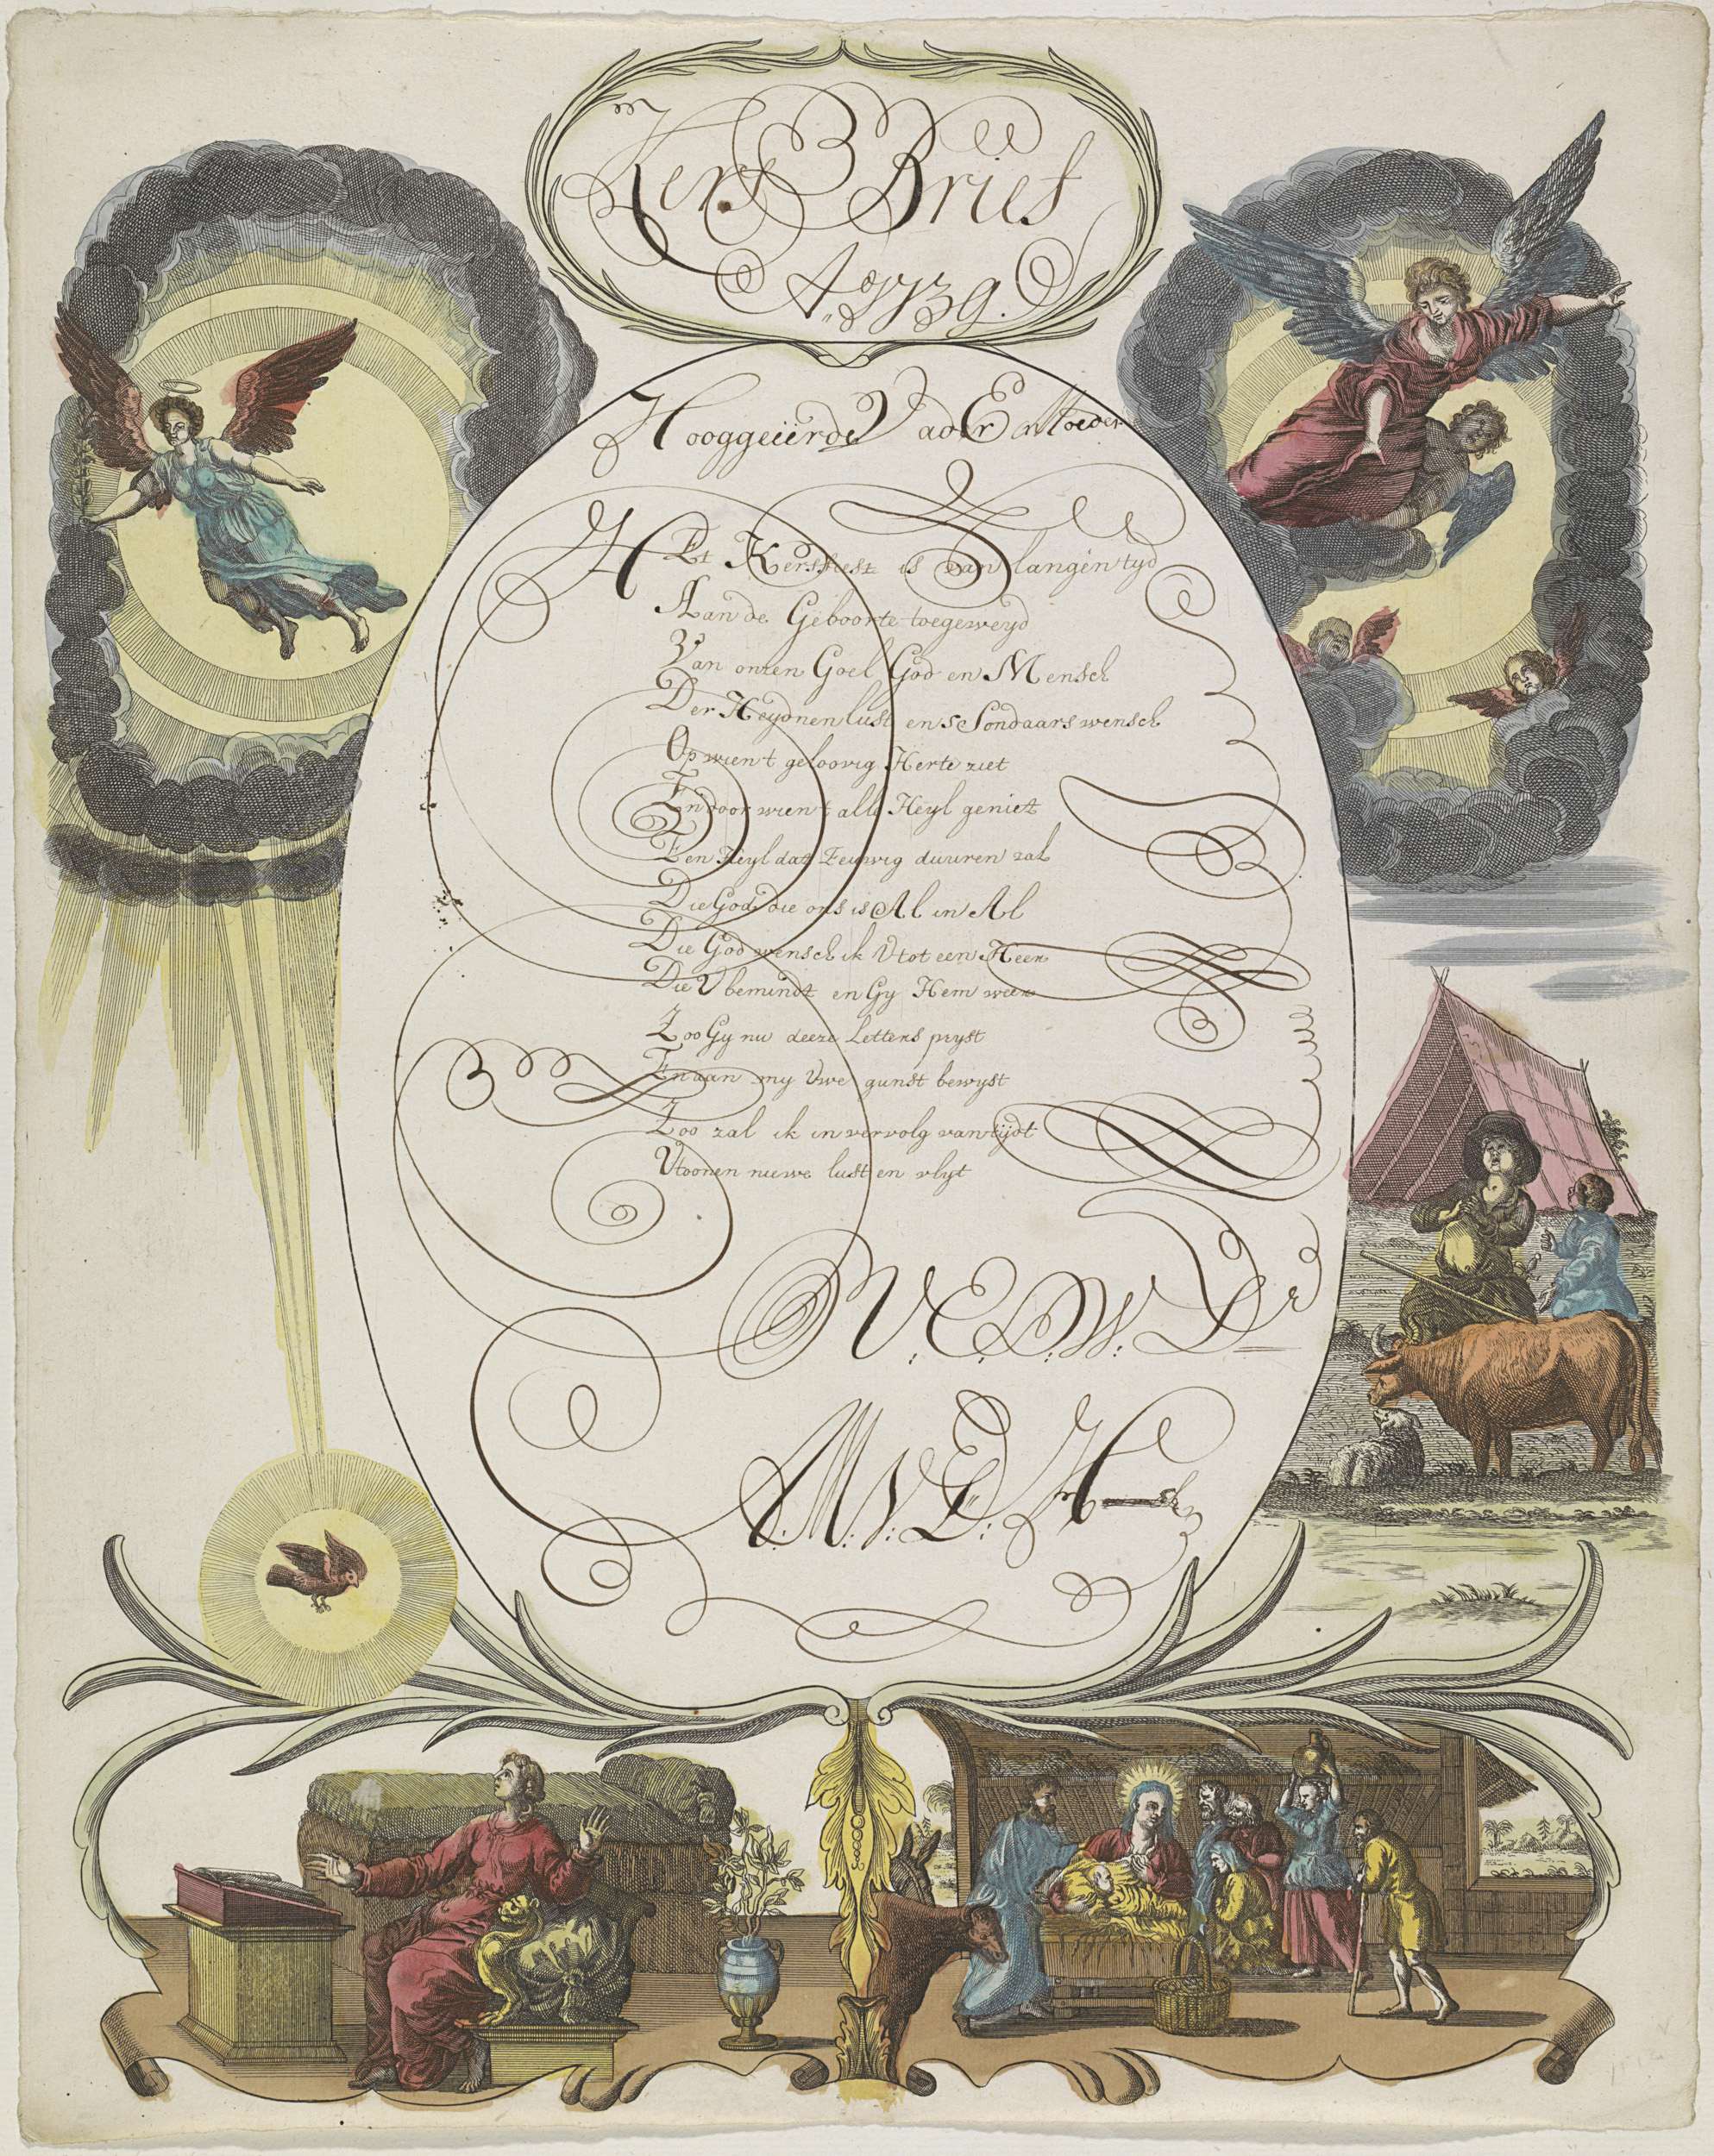 Kers Brief
A.º 1739.
Hooggeëerde Vader En Moeder
HEt Kersfeest is van langen tyd
Aan de Geboorte toegeweyd
Van onzen Goel God en Mensch
Der Heydnen lust en s Sondaars wensch
Op wien t geloovig Herte ziet
En door wien t alle Heyl geniet
Een Heyl dat Eeuwig duuren zal
Die God die ons is Al in Al
Die God wensch ik V tot een Heer
Die V bemindt en Gy Hem weer
Zoo Gy nu deeze Letters pryst
En aan my Vwe gunst bewyst
Zoo zal ik in vervolg van tijdt
V toonen nuwe lust en vlyt
V: E: D: W: Dr
M: V: D: H